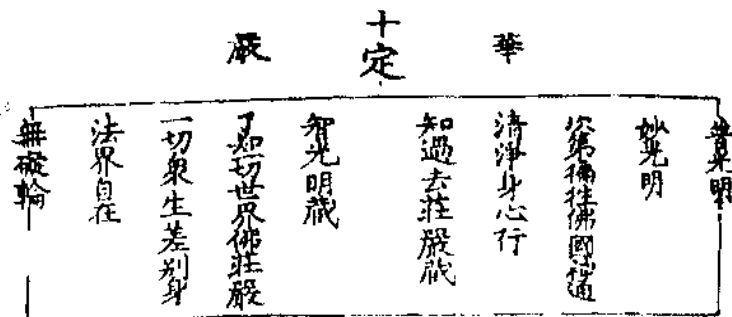 華嚴
十定
普光明
妙光明
次第徧往佛國神通
清淨身心行
知過去莊嚴藏
智光明藏
了知一切世界佛莊嚴
一切衆生差別身
法界自在
無礙輪